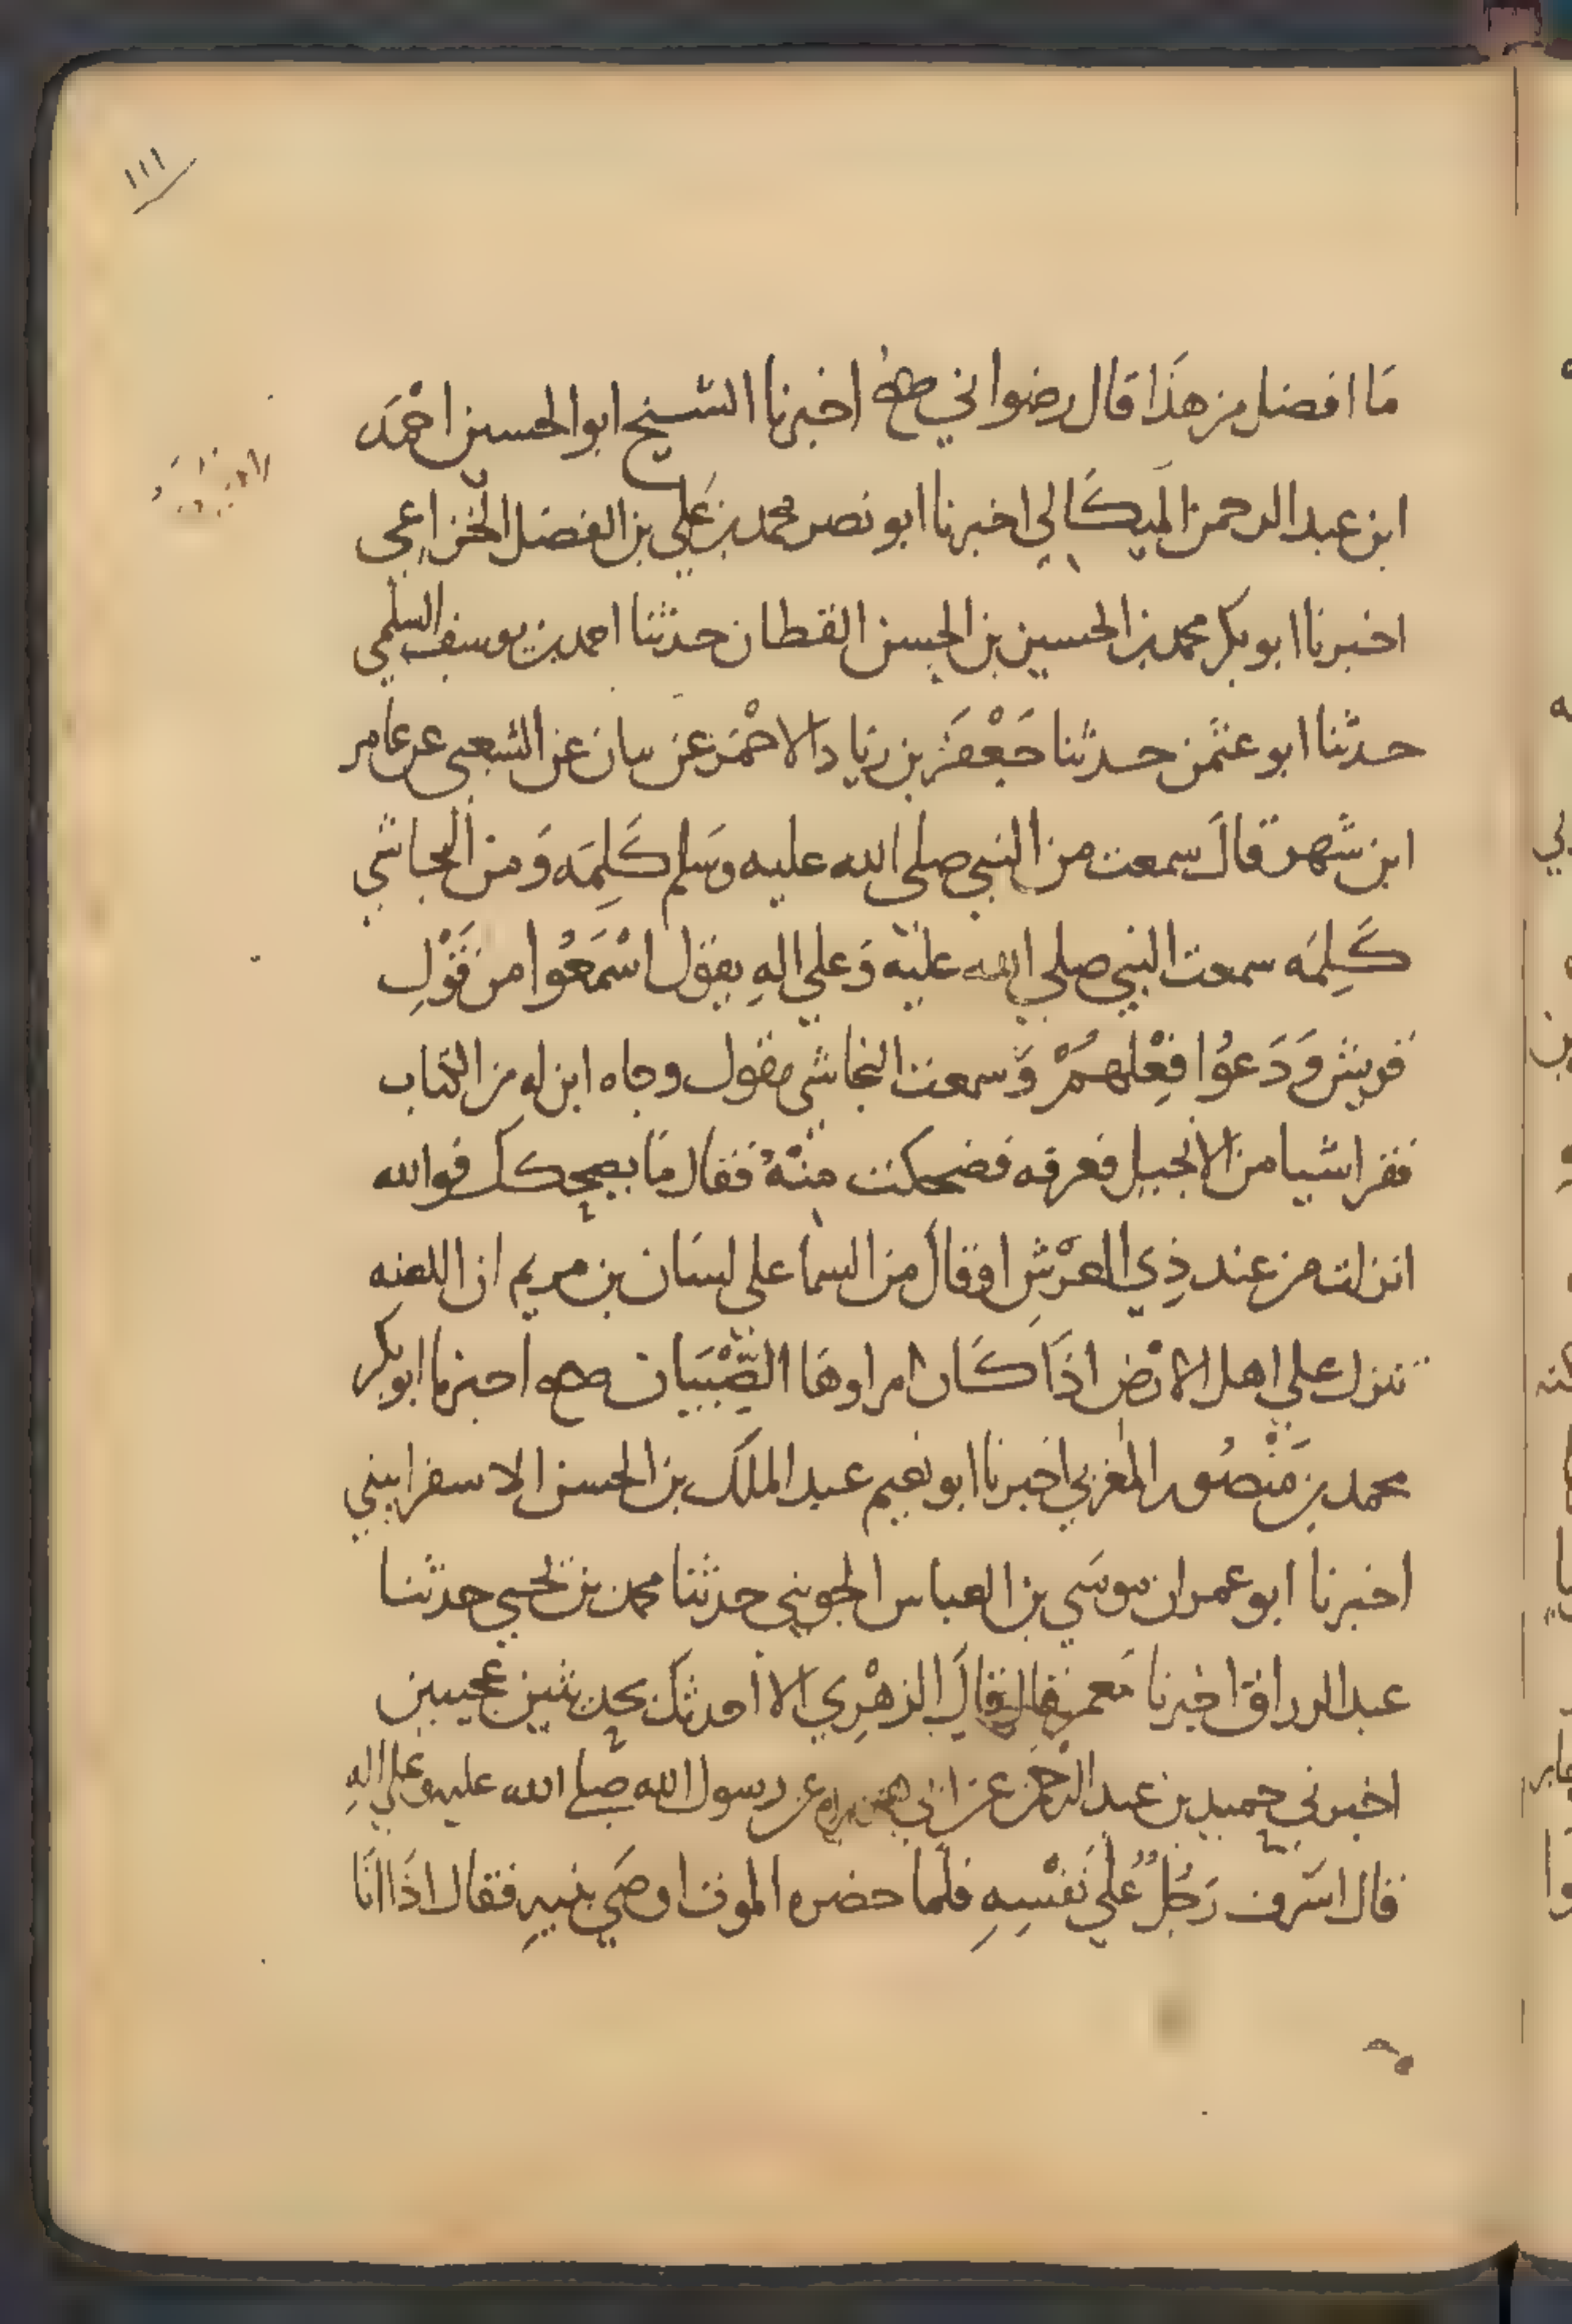 ١١١
مَا افضل من هذَا قال رضواني صح اخبرنا الشيخ ابوالحسين احْمَد
ابن عبدالرحمن الميكَالي اخبرنا ابو نصر محمد بن عَلي بن الفضل الخزاعي
اخبرنا ابو بكر محمد بن الحسين بن الحسن القطان حدثنا احمد بن يوسف السلمي
حدثنا ابو عثمن حدثنا جَعْفَر بن زياد الاحْمَر عن بيان عن الشعبي عن عامر
ابن شَهر قالَ سمعت من النبي صلى الله عليه وسَلم كَلِمَه وَ من النجاشي
كَلِمَه سمعت النبي صلي الله عليه وَعلي الهِ يقول اسْمَعُوا من قَوْلِ
قريش وَدَعُوا فِعْلهُمْ وَسمعت النجاشي يقول وجاه ابن له من الكتاب
فقرا شيا من الانجيل فعرفه فضحكت منْهُ فقال مَا يضحكك فوالله
انزلت من عند ذِي العرْشِ او قال من السما علي لسَان بن مريم ان اللعنه
تنزل علي اهل الارْض اذَا كَان امراوهَا الصِّبْيَان صح اخبرنا ابو بكر
محمد بن مَنْصُور المغربي اخبرنا ابو نعيم عبدالملك بن الحسن الاسفراييني
اخبرنا ابو عمران موسَي بن العباس الجويني حدثنا محمد بن يحيي حدثنا
عبدالرزاق اخبرنا مَعمر قال قالَ الزهْرِي الا احدثك بحديثين عجيبين
اخبرني حميد بن عبدالرحمن عن ابي هريره عن رسول الله صلي الله عليه وعلي الهِ
قال اسَرف رَجُلٌ عَلي نَفْسِهِ فلمَا حضره الموت اوصَي بنيهِ فقال اذَا انَا